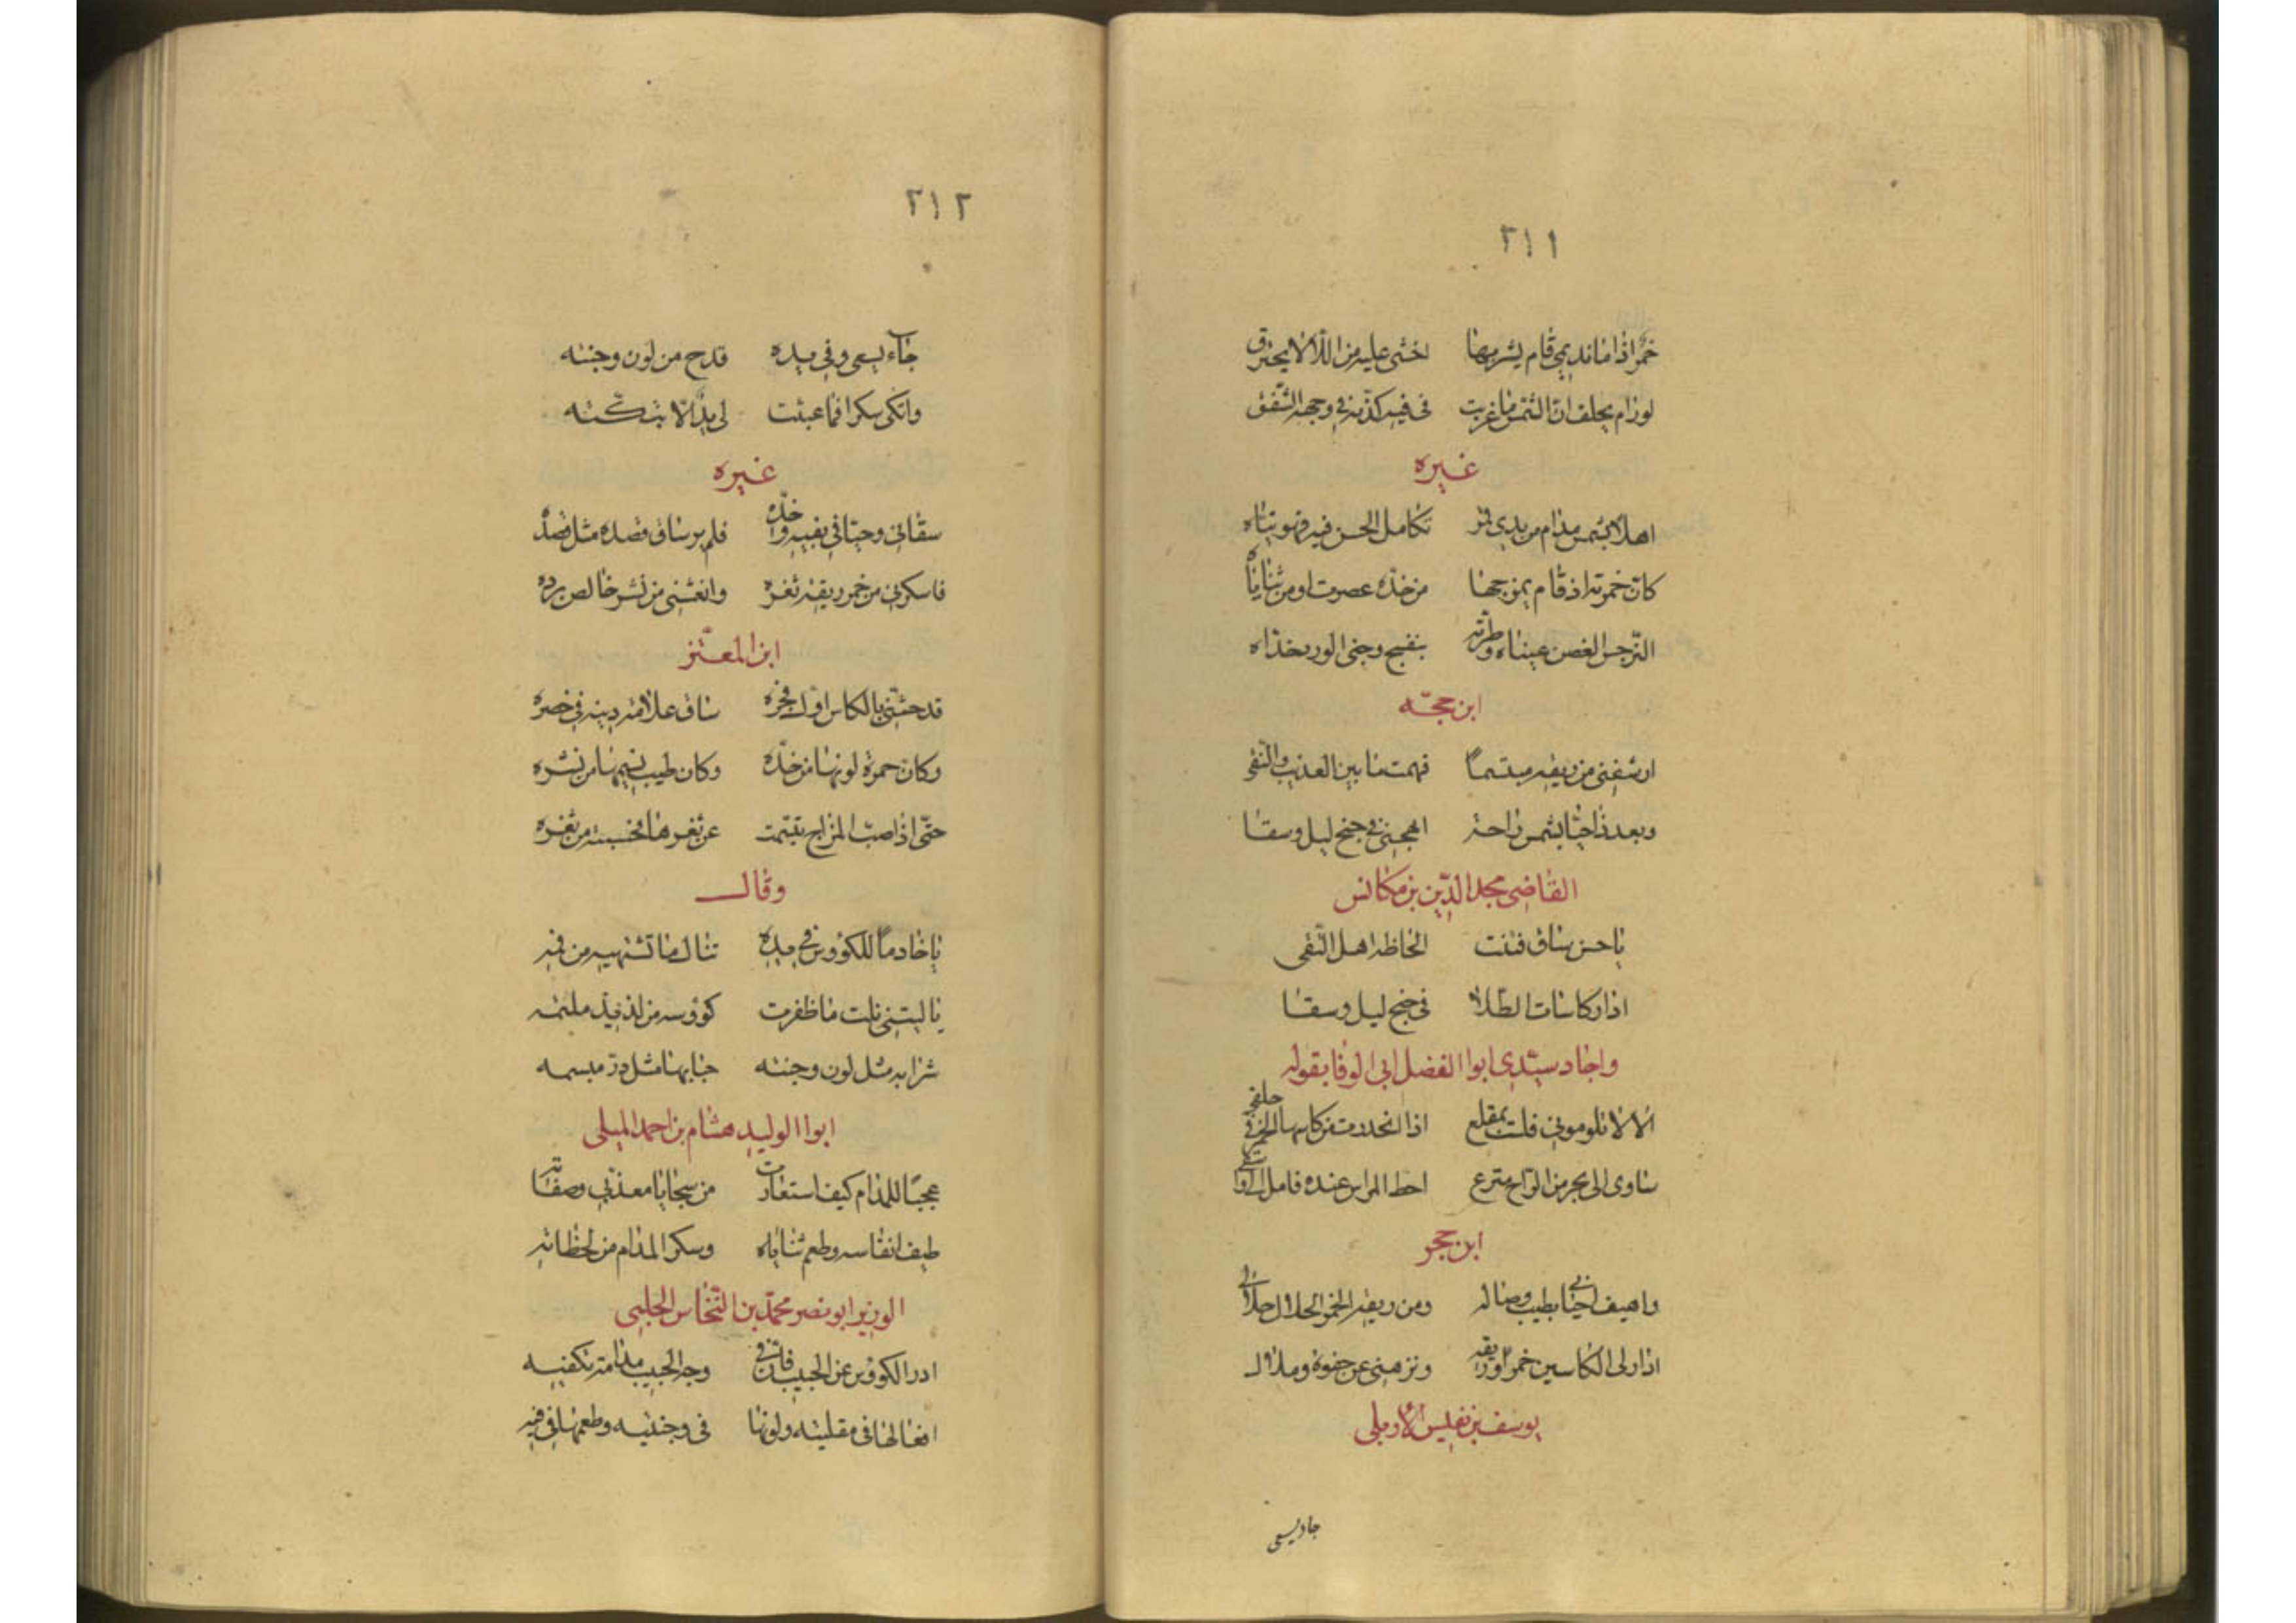 ٢١١
خمرا اذا ما نديمي قام يشربها اخشى عليه من اللألاء يحترق
لو رام يحلف ان الشمس ما غربت في فيه كذبه في وجهه الشفق
غيره
اهلا بشمس مدام من يدي قمر تكامل الحسن فيه فهو تياه
كان خمرته اذ قام يمزجها من خده عصرت او من ثناياه
النرجس الغض عيناه وطرته بنفسج وجنى الورد خداه
ابن حجّه
ارشفني من ريقه مبتسماً فهمت ما بين العذيب والنقى
وبعد ذا حيّا بشمس راحة اهجني في جنح ليل وسقا
القاضي مجد الدّين بن مكانس
يا حسن ساق فتنت الحاظه اهل التّقى
ادار كاسات الطّلا في جنح ليل وسقا
واجاد سيّدي ابوا الفضل ابي الوفا بقوله
الا لا تلوموني فلست بمقلع اذا انحدرت من كاسها الخمر في حلقي
ساوى الى بحر من الراح مترع احط المراسي عنده
ابن حجر
واهيف احياني بطيب وصاله ومن ريقه الخمر الحلال حلالي
ادار لي الكاسين خمراً وريقه ونزهني عن جفوة وملال
يوسف بن نفيس الأربلي
جاء يسعى
٢١٢
جاء يسعى وفي يده قدح من لون وجنته
واتكى سكرا فما عبثت لي يدٌ الّا بتكّته
غيره
سقاني وحيّاني بفيه وخدّه فلم ير ساق قصده مثل قصده
فاسكرني من خمر ريقة ثغره وانعشني من نشر خالص برده
ابن المعتّز
قد حثّني بالكاس اوّل فجره ساق علامة دينه في خصره
وكان حمرة لونها من خدّه وكان طيب نسيمها من نشره
حتّى اذا صبّ المزاج تبسّمت عن ثغرها فحسبته من ثغره
وقال
يا خادماً للكؤوس في يده تنال ما تشتهيه من فمه
يا ليتني نلت ما ظفرت كوؤسه من لذيذ ملثمه
شرابه مثل لون وجنته حبابها مثل درّ مبسمه
ابوا الوليد هشام بن احمد
عجبًا للمدام كيف استعارت من سجايا معذّبي وصفاته
طيب انفاسه وطعم ثناياه وسكر المدام من لحظاته
الوزير ابو نصر محمّد بن النّحاس الحلبي
ادر الكوؤس عن الحبيب فانّ في وجه الحبيب مدامة تكفيه
افعالها في مقلتيه ولونها في وجنتيه وطعمها في فيه